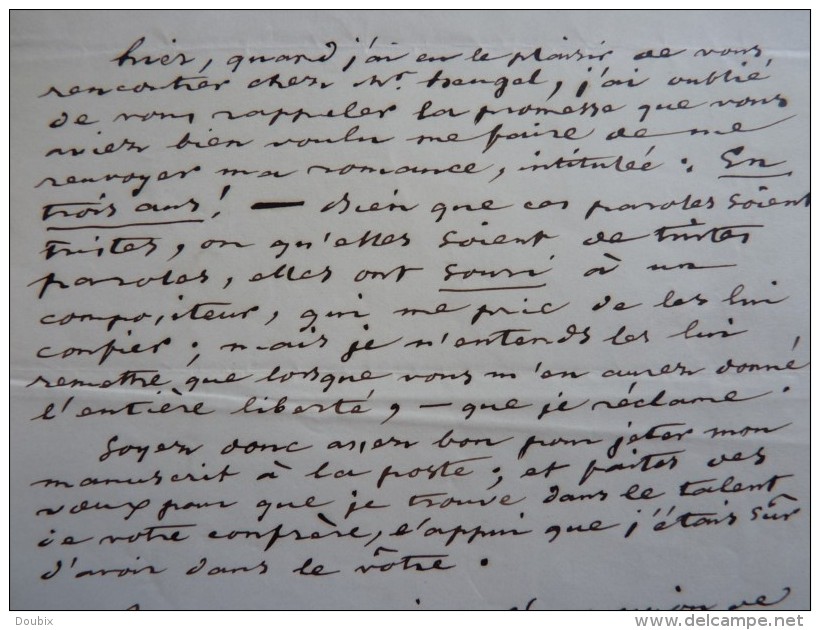 hier, quand j'ai eu le plaisir de vous
rencontrer chez Mr. heugel, j'ai oublié
de vous rappeler la promesse que vous
aviez bien voulu me faire de me
renvoyer ma romance, intitulée : En
trois ans! — Bien que ces paroles soient
tristes, ou qu'elles soient de tristes
paroles, elles ont souri à un
compositeur, qui me prie de les lui
confier ; mais je n'entends les lui
remettre que lorsque vous m'en aurez donné
l'entière liberté, — que je réclame.
Soyez donc assez bon pour jeter mon
manuscrit à la poste ; et faites des
vœux pour que je trouve dans le talent
de votre confrère, l'appui que j'étais sûr
d'avoir dans le vôtre.
de
Doubix
www.delcampe.net